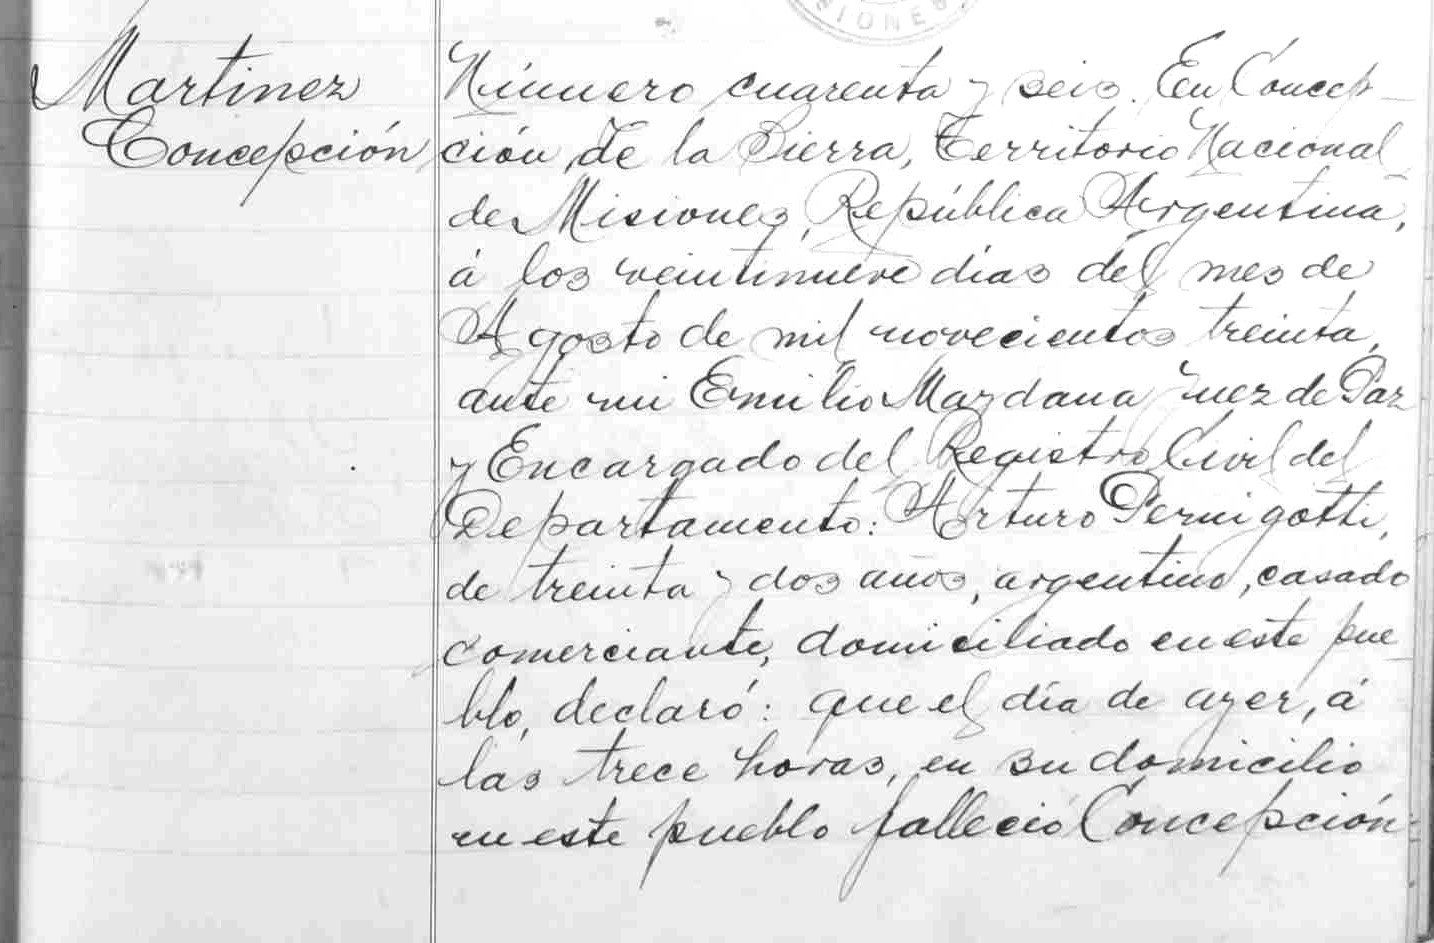 SIONES
Martinez
Concepción
Número cuarenta y seis. En Concep-
ción de la Sierra, Territorio Nacional
de Misiones, República Argentina,
á los veintinueve días del mes de
Agosto de mil novecientos treinta,
ante mi Emilio Maydana Juez de Paz
y Encargado del Registro Civil del
Departamento: Arturo Pernigotti,
de treinta y dos años, argentino, casado
comerciante, domiciliado en este pue-
blo, declaró: que el día de ayer, á
las trece horas, en su domicilio
en este pueblo falleció Concepción